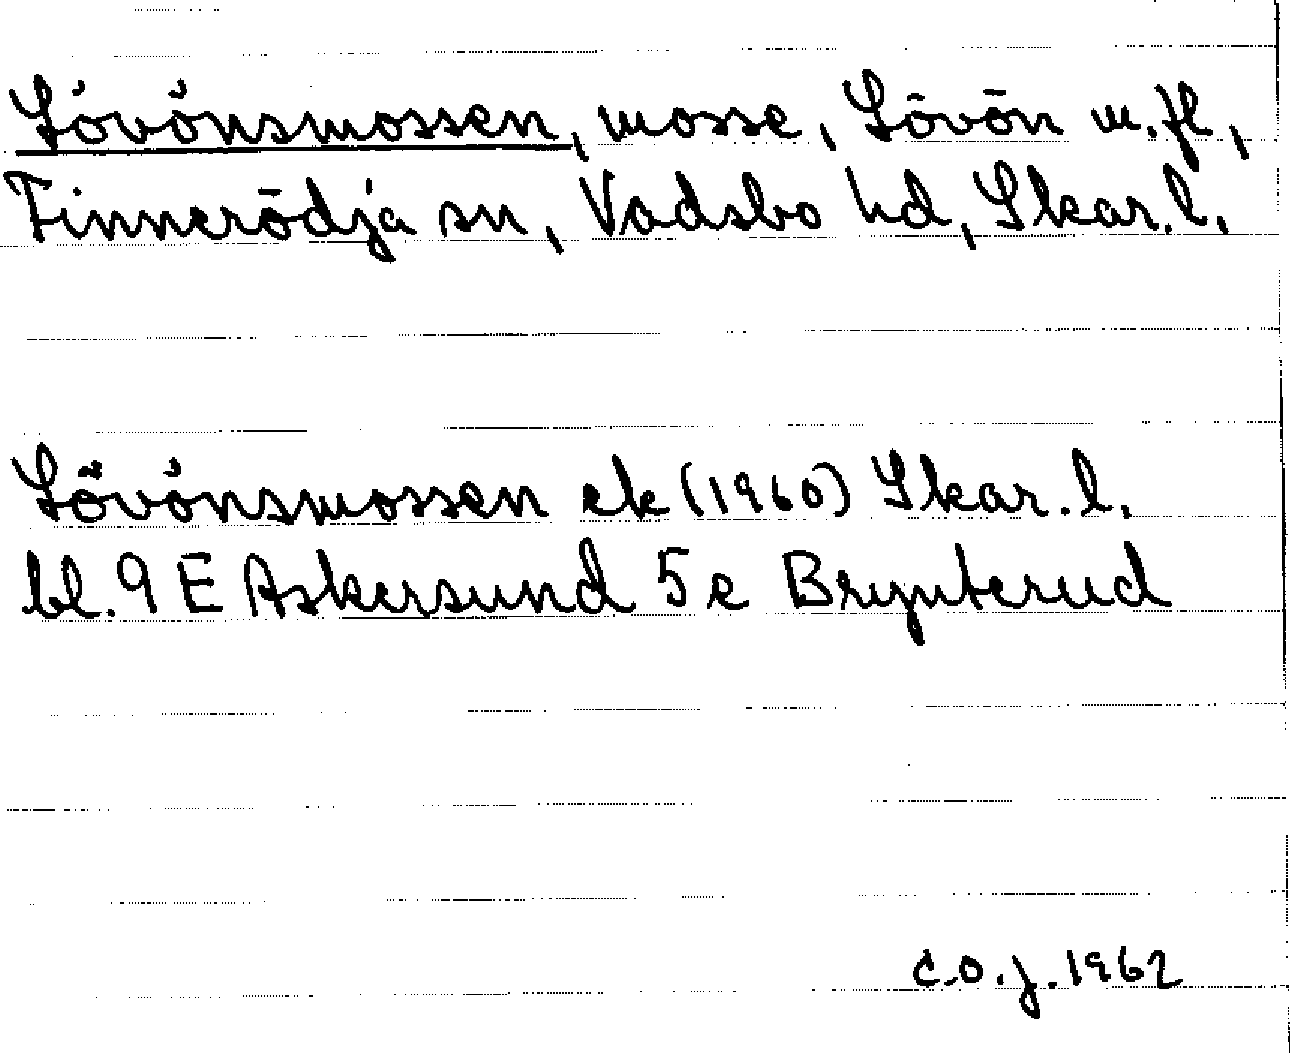 Sövönsmossen, mosse, Sövön m.fl,
Finnerödja sn, Vadsbo hd, Skar.l.
Sövönsmossen ek (1960) Skar.l.
bl. 9 E Askersund 5 e Brynterud
C.O.J. 1962